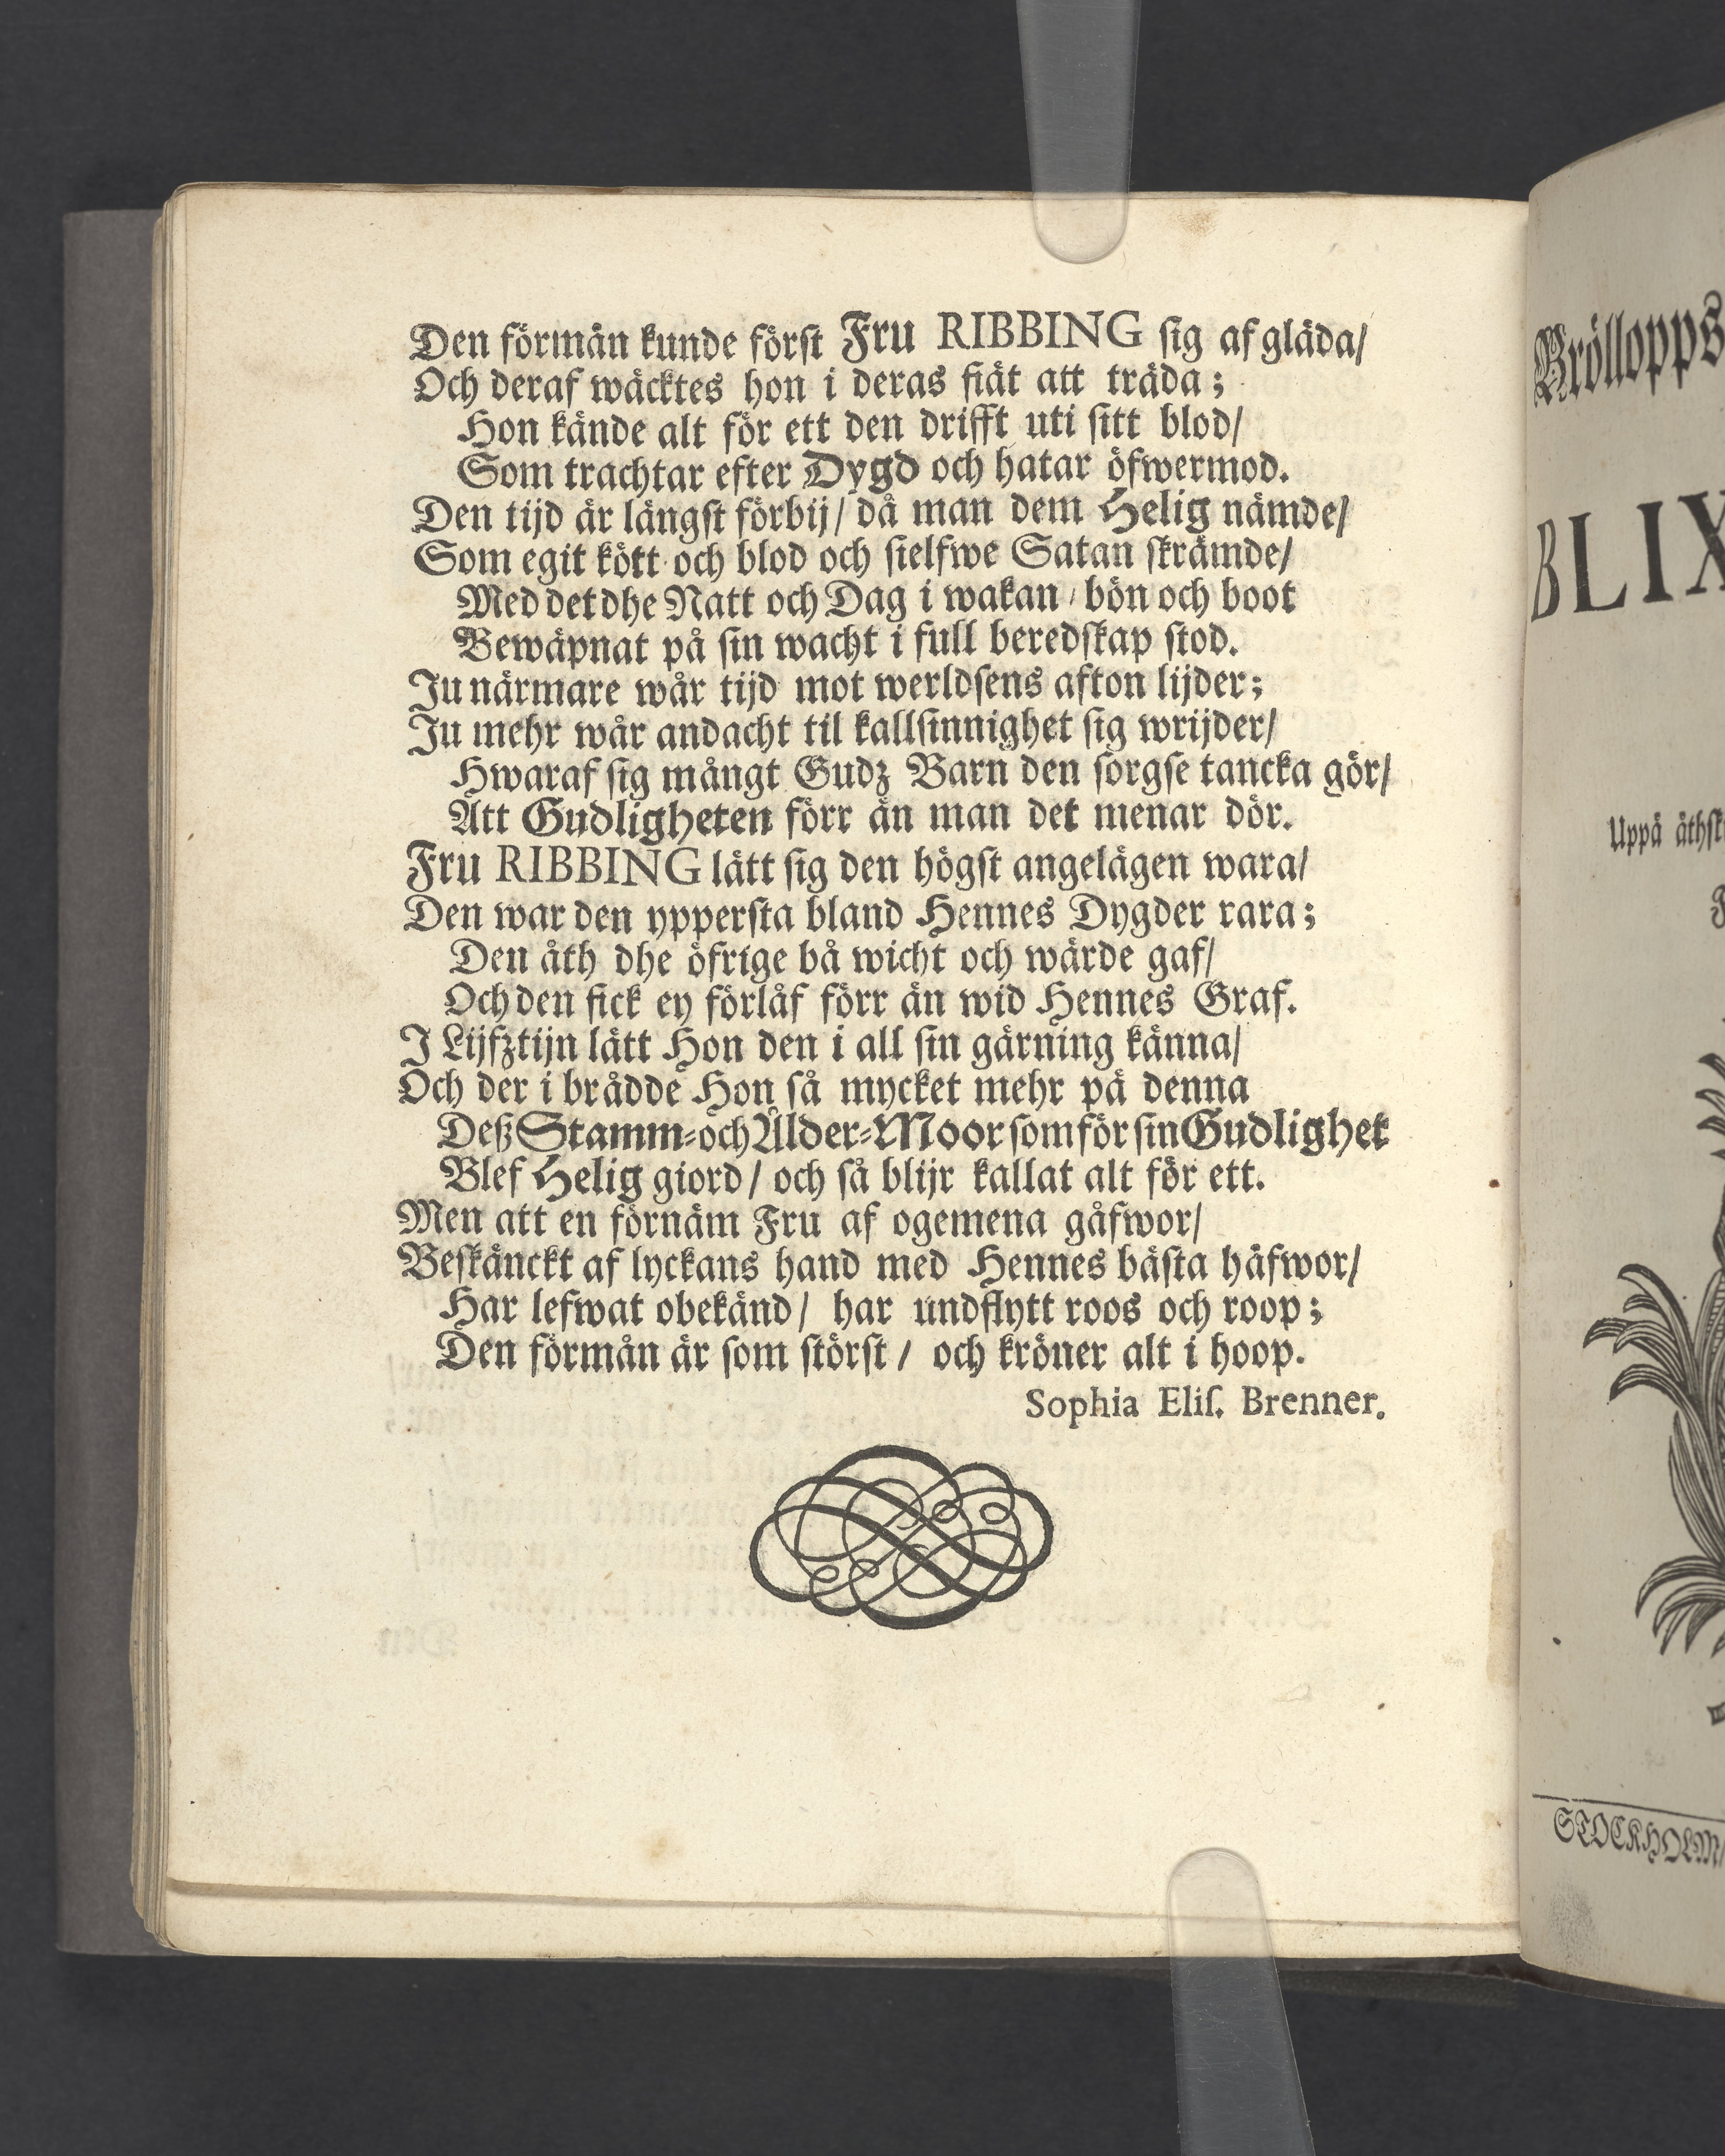 Den förmån kunde först Fru RIBBING sig af gläda/
Och deraf wäcktes hon i deras fiät att träda;
Hon kände alt för ett den drifft uti sitt blod/
Som trachtar efter Dygd och hatar öfwermod.
Den tijd är längst förbij/ då man dem Helig nämde/
Som egit kött och blod och sielfwe Satan skrämde/
Med det dhe Natt och Dag i wakan/ bön och boot
Bewäpnat på sin wacht i full beredskap stod.
Ju närmare wår tijd mot werldsens afton lijder;
Ju mehr wår andacht til kallsinnighet sig wrijder/
Hwaraf sig mångt Gudz Barn den sorgse tancka gör/
Att Gudligheten förr än man det menar dör.
Fru RIBBING lätt sig den högst angelägen wara/
Den war den yppersta bland Hennes Dygder rara;
Den åth dhe öfrige bå wicht och wärde gaf/
Och den fick ey förlåf förr än wid Hennes Graf.
I Lijfztijn lätt Hon den i all sin gärning känna/
Och der i brådde Hon så mycket mehr på denna
Deß Stamm-och Ålder-Moor som för sin Gudlighet
Blef Helig giord/ och så blijr kallat alt för ett.
Men att en förnäm Fru af ogemena gåfwor/
Beskänckt af lyckans hand med Hennes bästa håfwor/
Har lefwat obekänd/ har undflytt roos och roop;
Den förmån är som störst/ och kröner alt i hoop.
Sophia Elis. Brenner.
Bröllopps
BLIX
Uppå äthsk
STOCKHOLM/